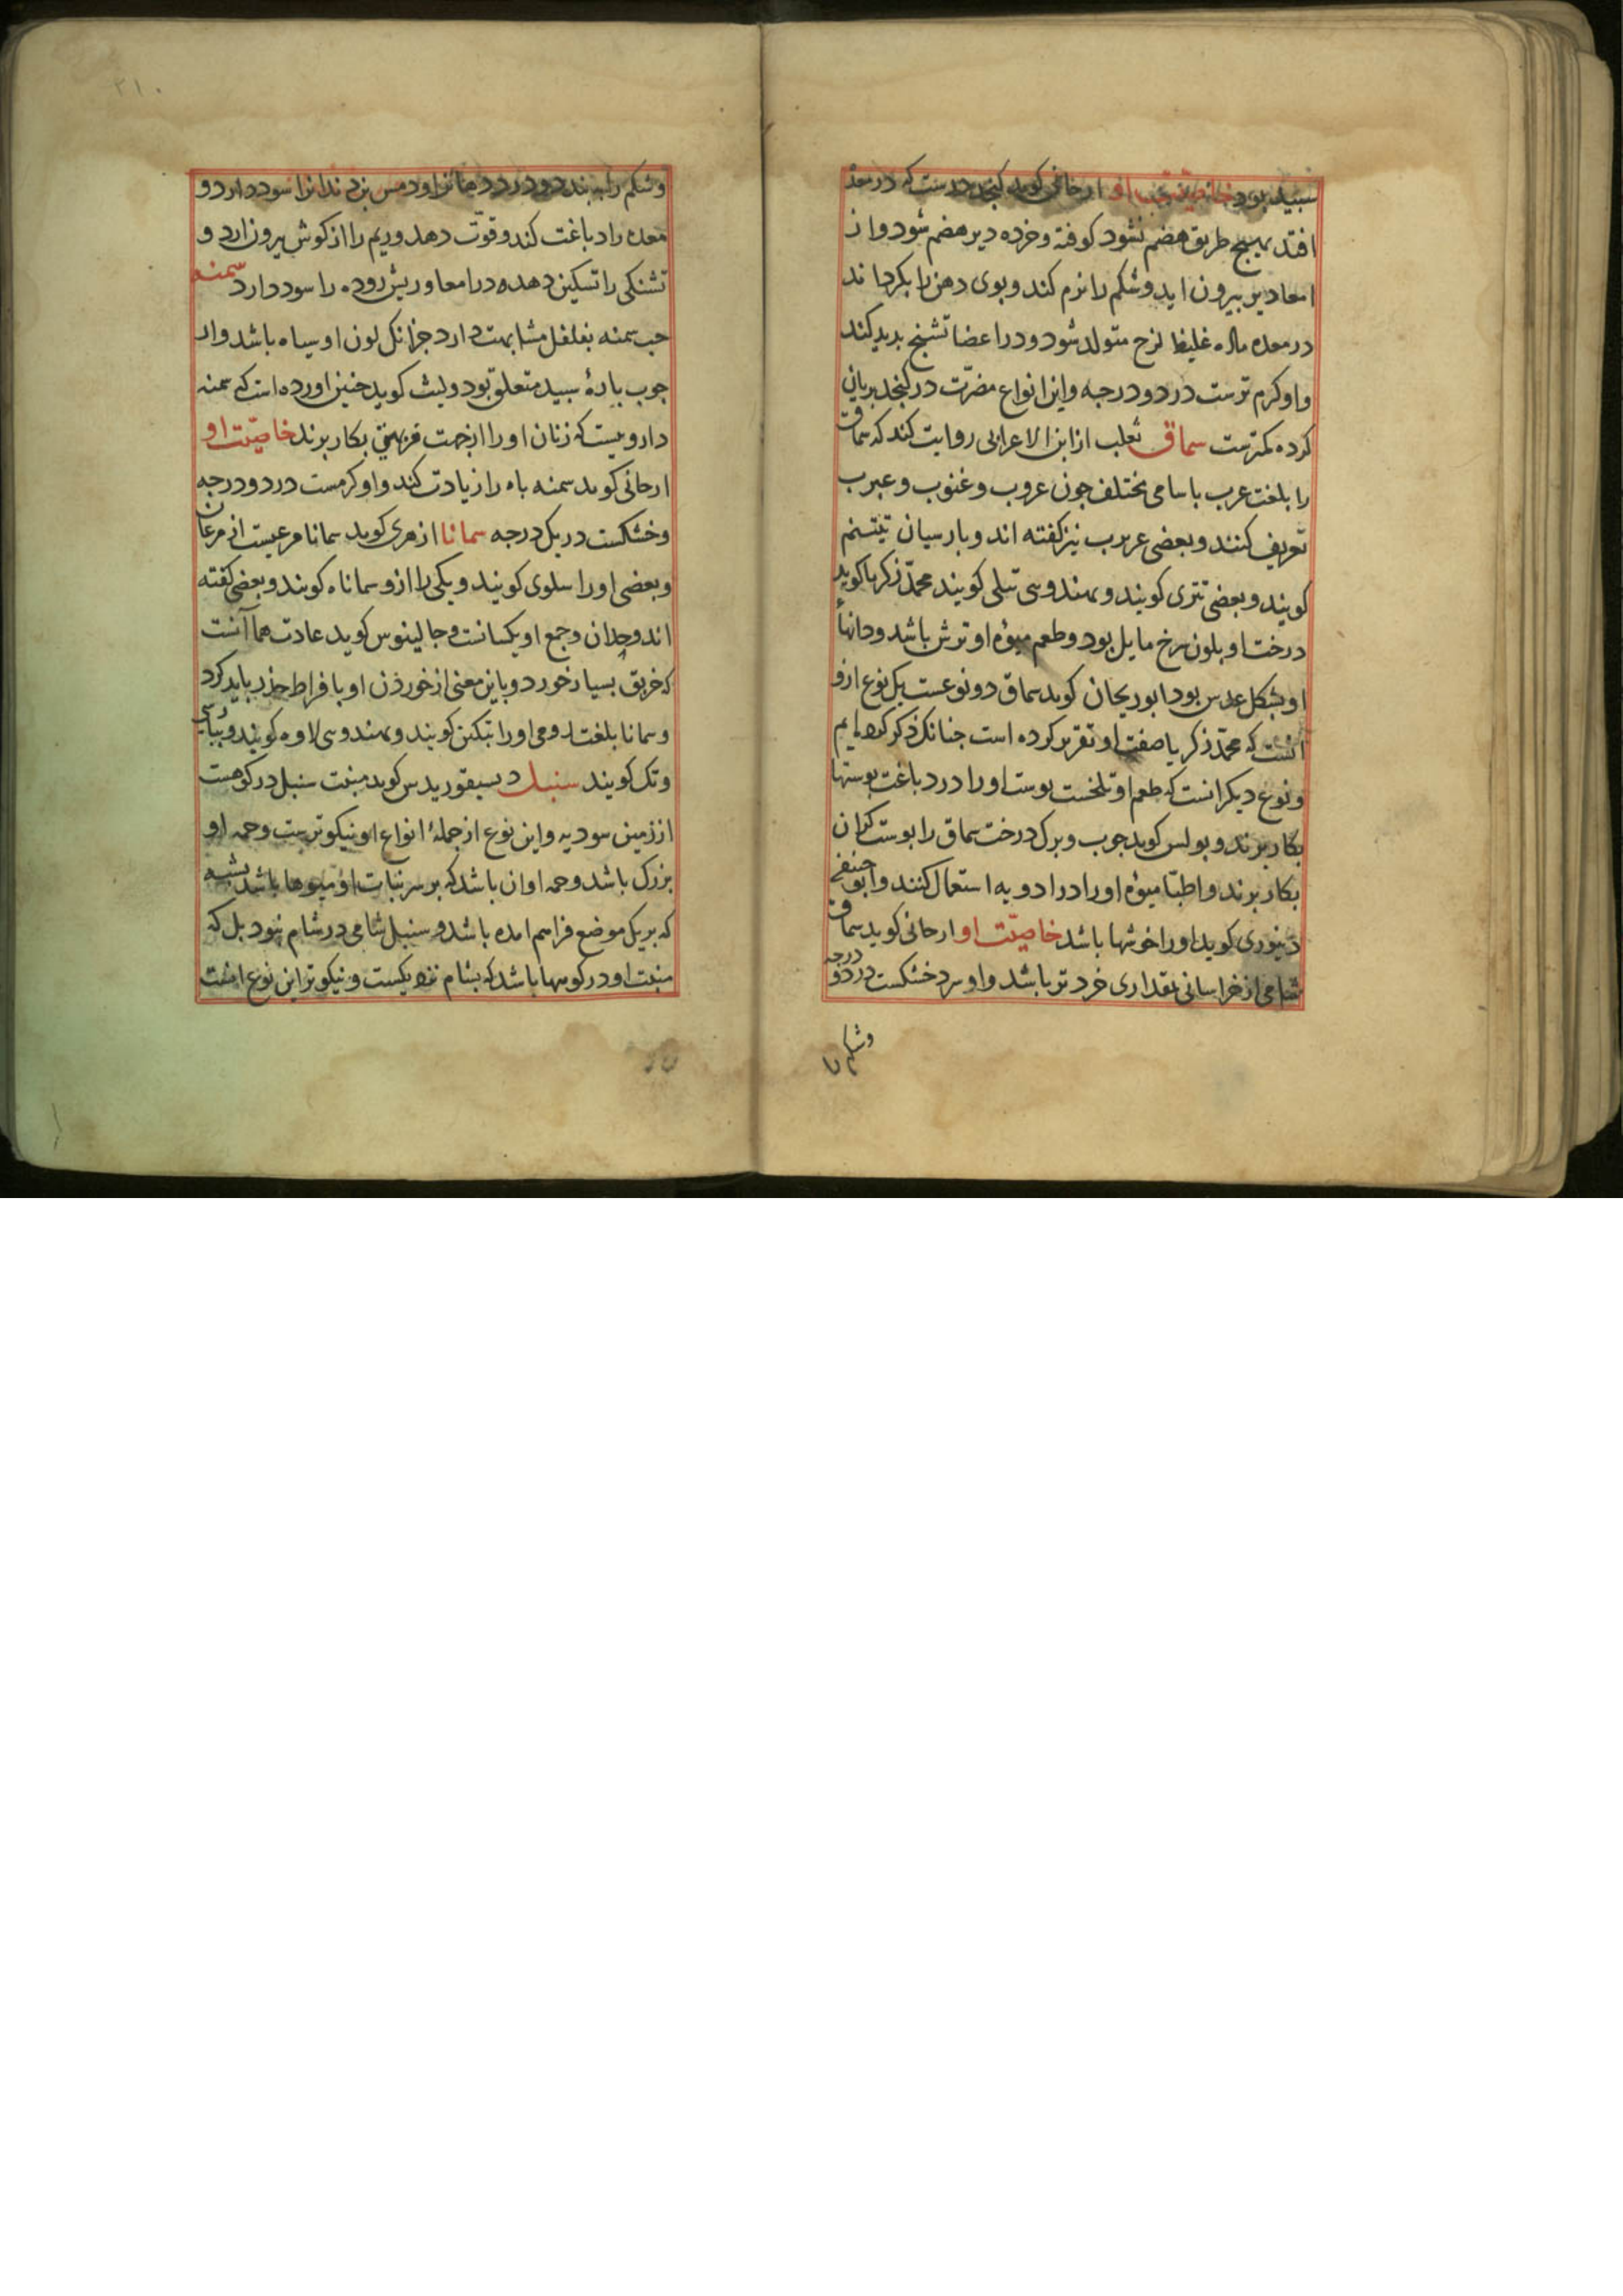 سپید بود خاصیّت او ارجانی کوید کنجد درست که در معده
افتد بهیچ طریق هضم نشود کوفته و خرده دیر هضم شود و از
امعا دیر بیرون اید و شکم را نرم کند و بوی دهن را بکرداند
در معده ماده غلیظ لزج متولد شود و در اعضا تشنج بدید کند
و او کرم ترست در دو درجه و این انواع مضرّت در کنجد بریان
کرده کمترست سماق ثعلب از ابن الاعرابی روایت کند که سماق
را بلغت عرب باسامی مختلف جون عروب و عنوب و عبرب
تعریف کنند و بعضی عربرب نیز کفته اند و بارسیان تتم
کویند و بعضی تتری کویند و بهندوی تتلی کویند محمّد زکریا کوید
درخت او بلون سرخ مایل بود و طعم میوهٔ او ترش باشد و دانهاٴ
او بشکل عدس بود ابوریحان کوید سماق دو نوعست یک نوع ازو
آنست که محمّد زکریا صفت او تقریر کرده است جنانک ذکر کرده ایم
و نوع دیکر انست که طعم او تلخست بوست او را در دباغت بوستها
بکار برند و بولس کوید جوب و برک درخت سماق را بوست کران
بکار برند و اطبّا میوهٔ او را در ادویه استعمال کنند و ابو حنیفه
دینوری کوید او را خوشها باشد خاصیّت او ارجانی کوید سماق
شامی از خراسانی بمقداری خرد تر باشد و او سرد خشکست در دو درجه
و شکم را
۲۱۰
و شکم را ببندد و درد دهانرا و دمس بزد ندانرا سود دارد و
معده را دباغت کند و قوّت دهد و ریم را از کوش بیرون ارد و
تشنکی را تسکین دهد در امعا و ریش روده را سود دارد سمنه
حب سمنه بفلفل مشابهت دارد جز انک لون او سیاه باشد و از
جوب بارهٔ سبید متعلق بود و لیث کوید جنین اورده است که سمنه
دارویست که زنان او را از جهت فربهی بکار برند خاصیّت او
ارجانی کوید سمنه باه را زیادت کند و او کرمست در دو درجه
و خشکست در یک درجه سمانا ازهری کوید سمانا مرغیست از مرغان
و بعضی او را سلوی کویند و یکی را ازو سماناه کویند و بعضی کفته
اند وحدان و جمع او یکسانست و جالینوس کوید عادت سمانا آنست
که خربق بسیار خورد و باین معنی از خوردن او بافراط حذر باید کرد
و سمانا بلغت رومی او را بتکنن کویند و بهندوی لاوه کویند و بپارسی
وتک کویند سنبل دیسیقوریدس کوید منبت سنبل در کوهست
از زمین سودیه و این نوع از جملهٔ انواع او نیکوترست و حمه او
بزرک باشد و حمه او ان باشد که بر سر نبات او میوها باشد بشبه
که بر یک موضع فراهم امده باشد و سنبل شامی در شام نبود بل که
منبت او در کوهها باشد که بشام نزدیکست و نیکوتر این نوع انست